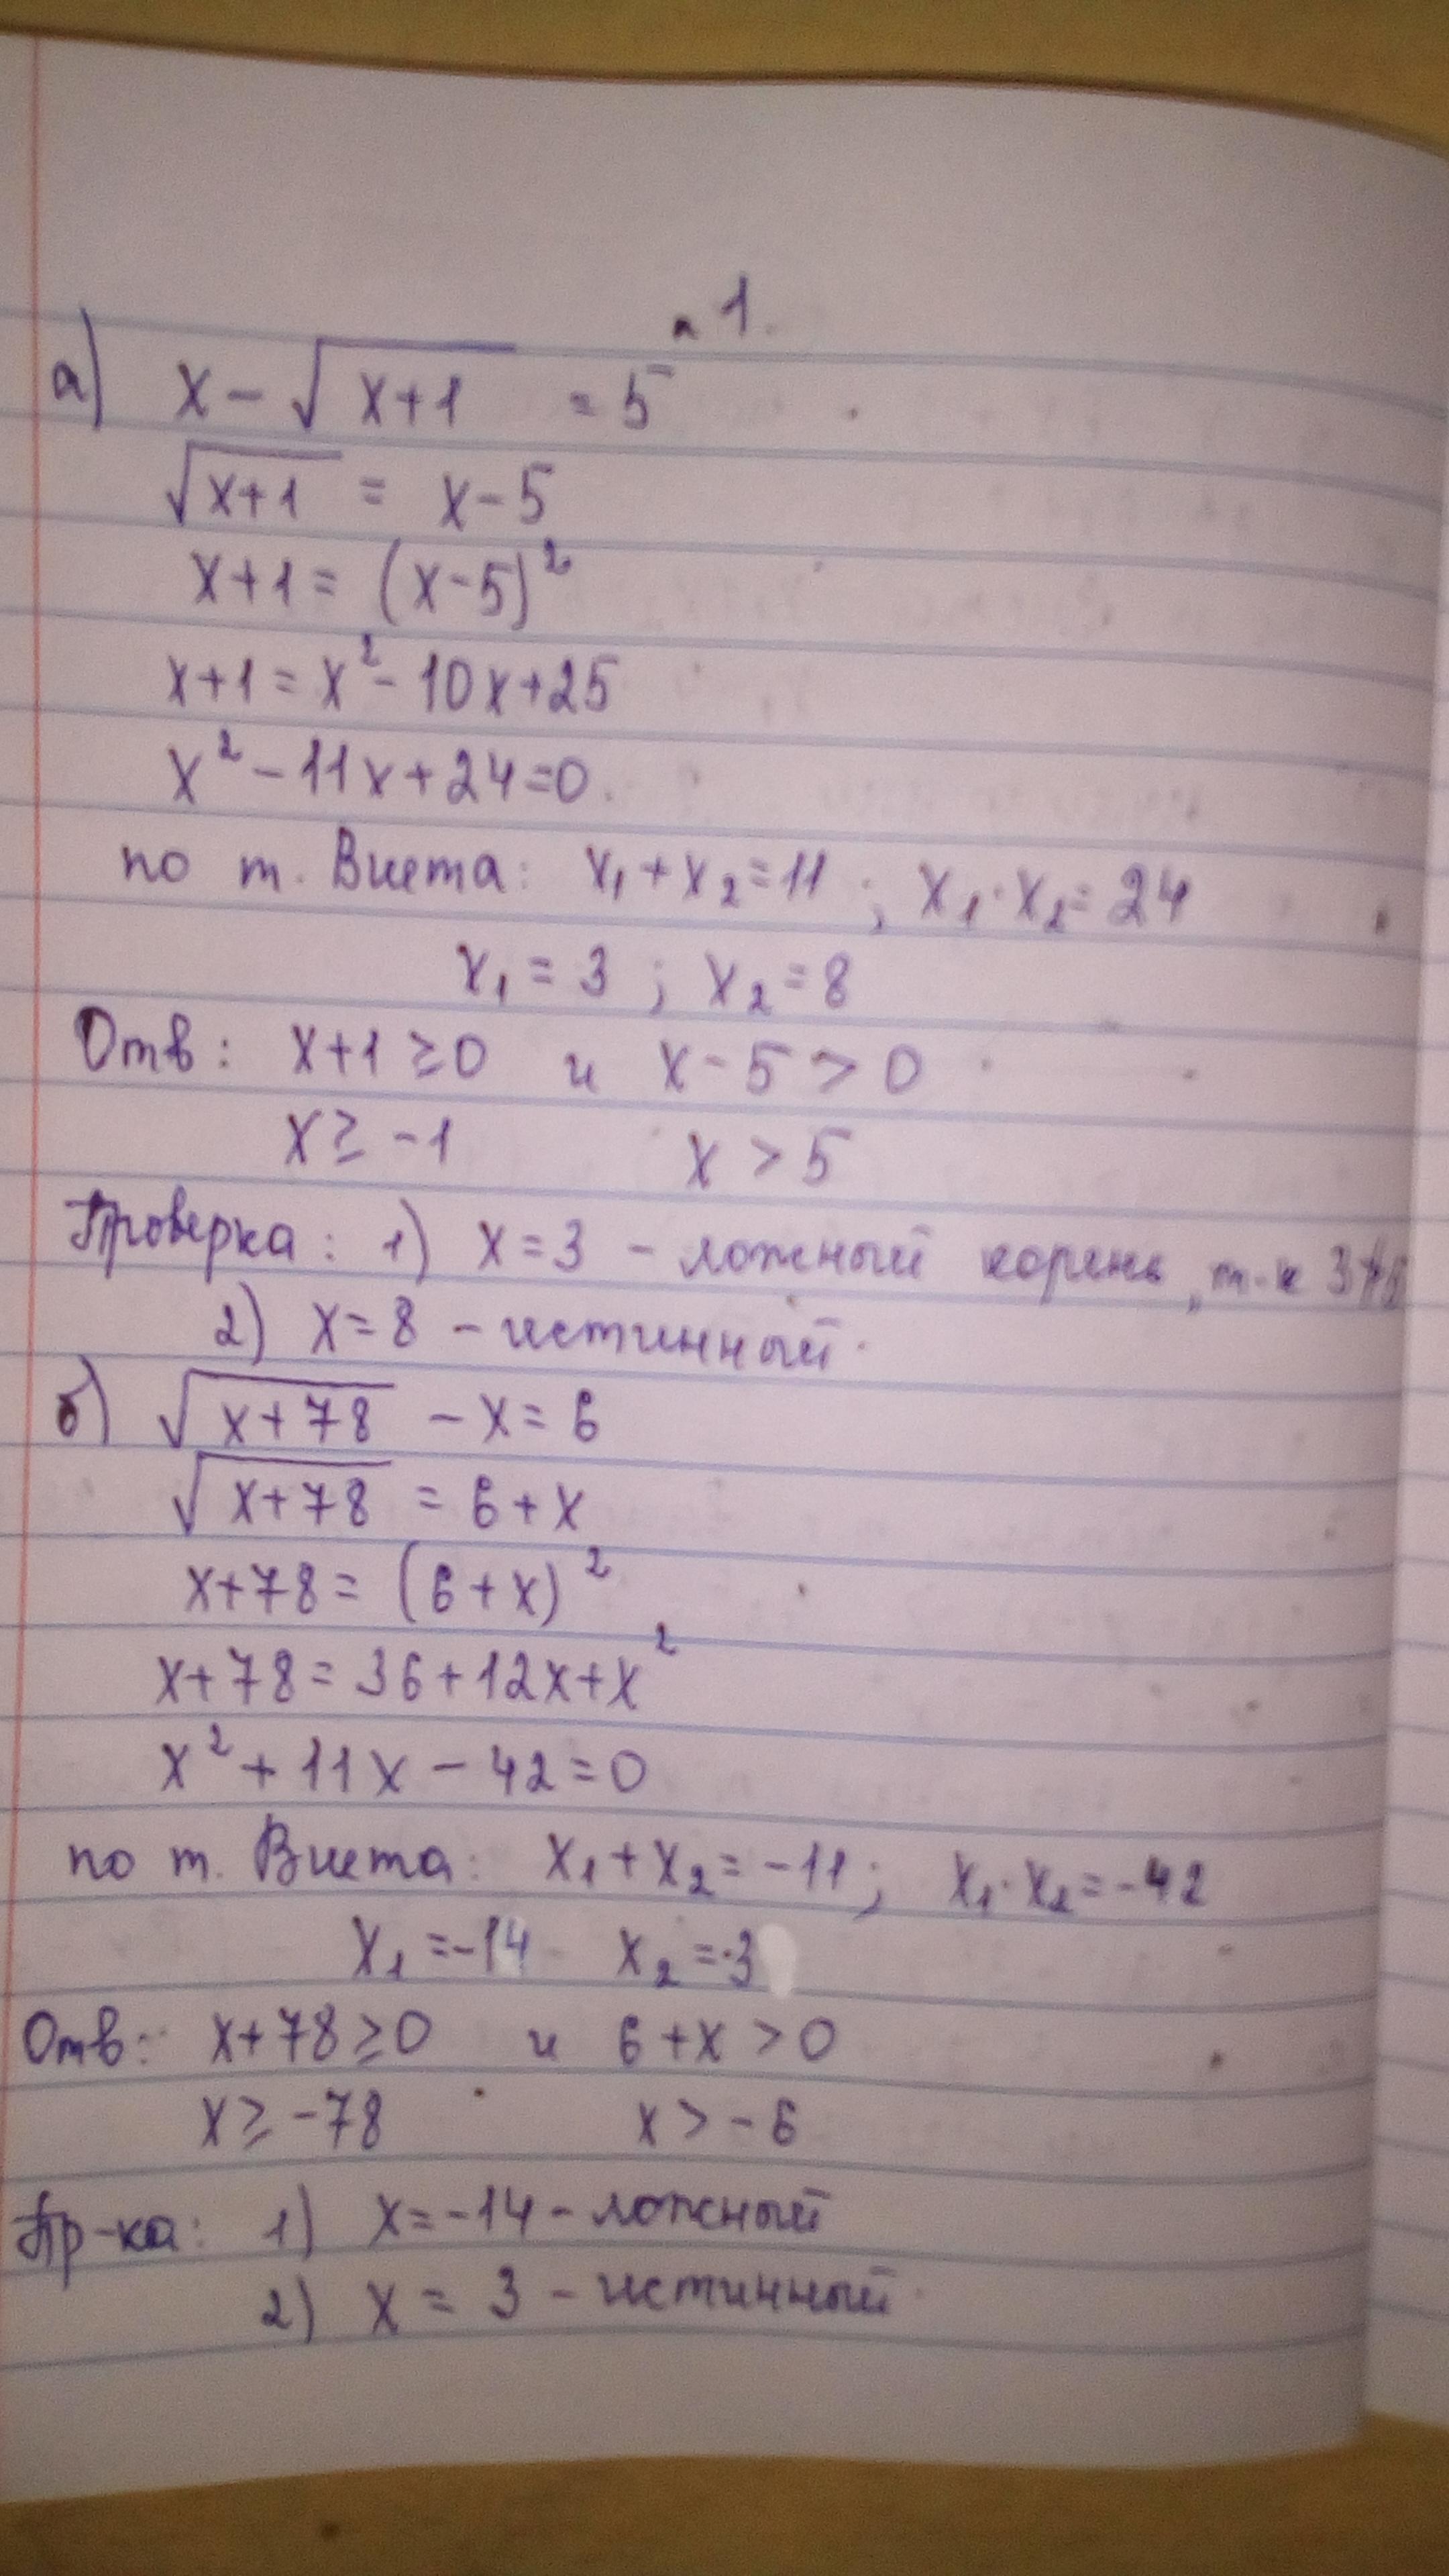 1.
а) x - √(x+1) = 5
√(x+1) = x - 5
x+1 = (x-5)²
x+1 = x² - 10x+25
x² - 11x + 24 = 0.
по т. Виета: x₁ + x₂ = 11 ; x₁ · x₂ = 24
x₁ = 3 ; x₂ = 8
Отв: x+1 ≥ 0 и x - 5 > 0
x ≥ -1 x > 5
Проверка: 1) x = 3 - ложный корень, т-к
2) x = 8 - истинный.
б) √(x+78) - x = 6
√(x+78) = 6 + x
x+78 = (6+x)²
x+78 = 36+12x+x²
x² + 11x - 42 = 0
по т. Виета: x₁ + x₂ = -11; x₁ · x₂ = -42
x₁ = -14 x₂ = 3
Отв: x+78 ≥ 0 и 6+x > 0
x ≥ -78 x > -6
Пр-ка: 1) x = -14 - ложный
2) x = 3 - истинный.